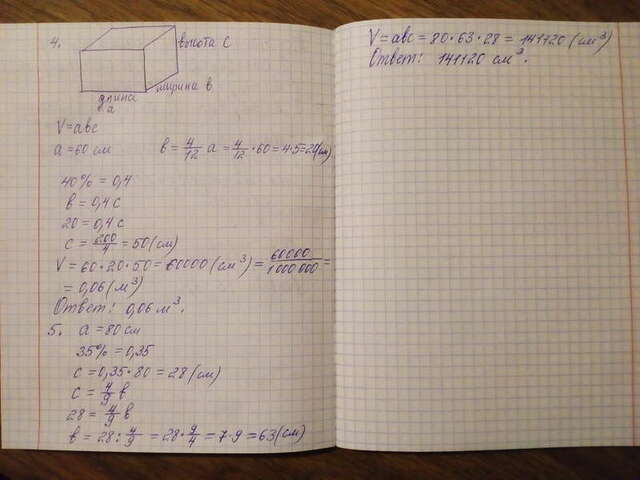 4.
высота С
ширина в
длина
а
V=авс
а=60 см в = 4/12 а = 4/12 • 60 = 4•5=20(см)
40% = 0,4
в = 0,4 с
20 = 0,4 с
с = 200/4 = 50 (см)
V = 60 • 20 • 50 = 60000 (см³) = 60000/1000000 =
= 0,06 (м³)
Ответ: 0,06 м³.
5. а = 80 см
35% = 0,35
с = 0,35 • 80 = 28 (см)
с = 4/9 в
28 = 4/9 в
в = 28 : 4/9 = 28 • 9/4 = 7 • 9 = 63 (см)
V = авс = 80 • 63 • 28 = 141120 (см³)
Ответ: 141120 см³.